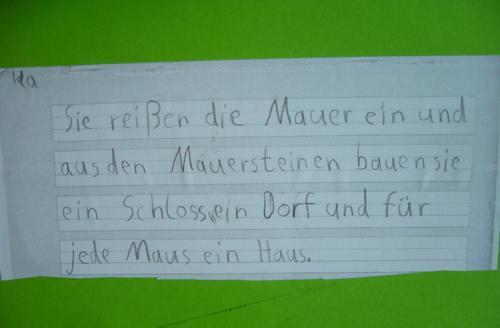 Ida
Sie reißen die Mauer ein und
aus den Mauersteinen bauen sie
ein Schloss, ein Dorf und für
jede Maus ein Haus.